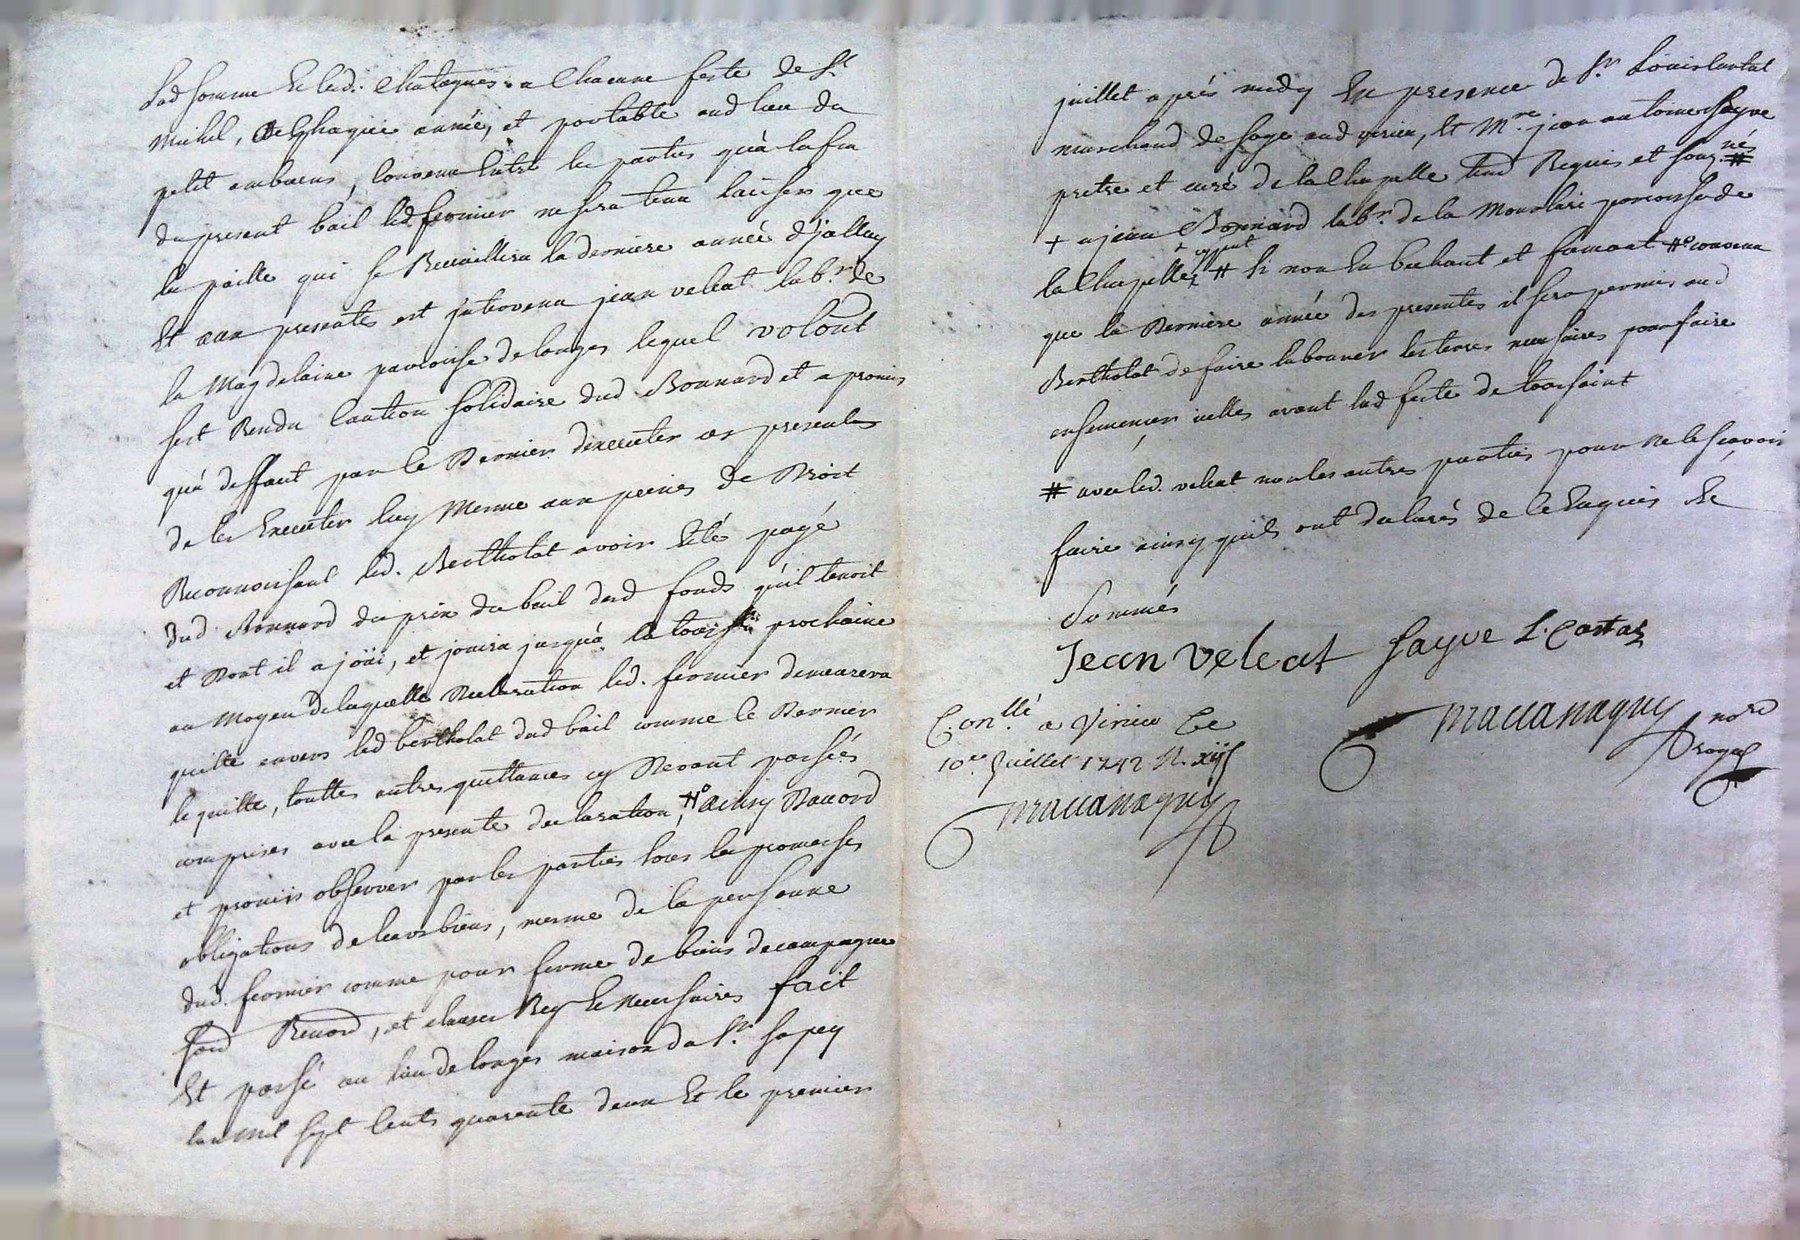 lad somme et led. chataignes a chacune feste de St
michel, de chaque année, et portable aud lieu du
petit embuens, convenu entre les parties qu'à la fin
du present bail led fermier ne sera tenu laisser que
la paille qui se Recuaillira la derniere année d'jalluy
Et aux presentes est intervenu jean veleat lab.r de
la Magdelaine parroisse de longes lequel volont
sest Rendu Caution solidaire dud Bonnard et a promis
qu'à deffaut par le Dernier d'executer ces presentes
de les Executer luy Mesme aux peines de Droit
Reconnoissant led. Bertholat avoir Eté payé
dud. Bonnard du prix du bail desd fonds qu'il tenoit
et Dont il a joüi, et jouira jusqu'à la toussts prochaine
au Moyen de laquelle Declaration led. fermier demeurera
quitte envers led bertholat dud bail comme le Dernier
le quitte, touttes autres quittances cy Devant passées
comprises avec la presente declaration, #o ainsy Daccord
et promis observer par les parties sous les promesses
obligations de leurs biens, mesme de la personne
dud. fermier comme pour ferme de biens de campagne
foud Renond, et clauses Req et necessaires fait
Et passé au lieu de longes maison du Sr. sapey
lan mil sept Cents quarente deux Et le premier
juillet après midy En presence de Sr. Loüis Contal
marchand de soye aud virieu, Et Mre. jean antoine sayve
pretre et curé de la Chapelle tind Requis et sousnés #
+ a jean Bonnard labr. de la Mourlari parroisse de
la Chapelle, + # et non En bechant et fumant #o convenu
que la Derniere année des presentes il sera permis aud
Bertholat de faire labourer les terres necessaires pour faire
ensemencer icelles avant lad feste de toussaint
# avec led. veleat non les autres parties pour ne le sçavoir
faire ainsy quils ont declarés de ce Enquis Et
Sommés
Jean veleat sayve L. Contal
Maccanaguy nore
royal
Conllé a Virieu Ce
10e Juillet 1742 R. xijs
Maccanaguy